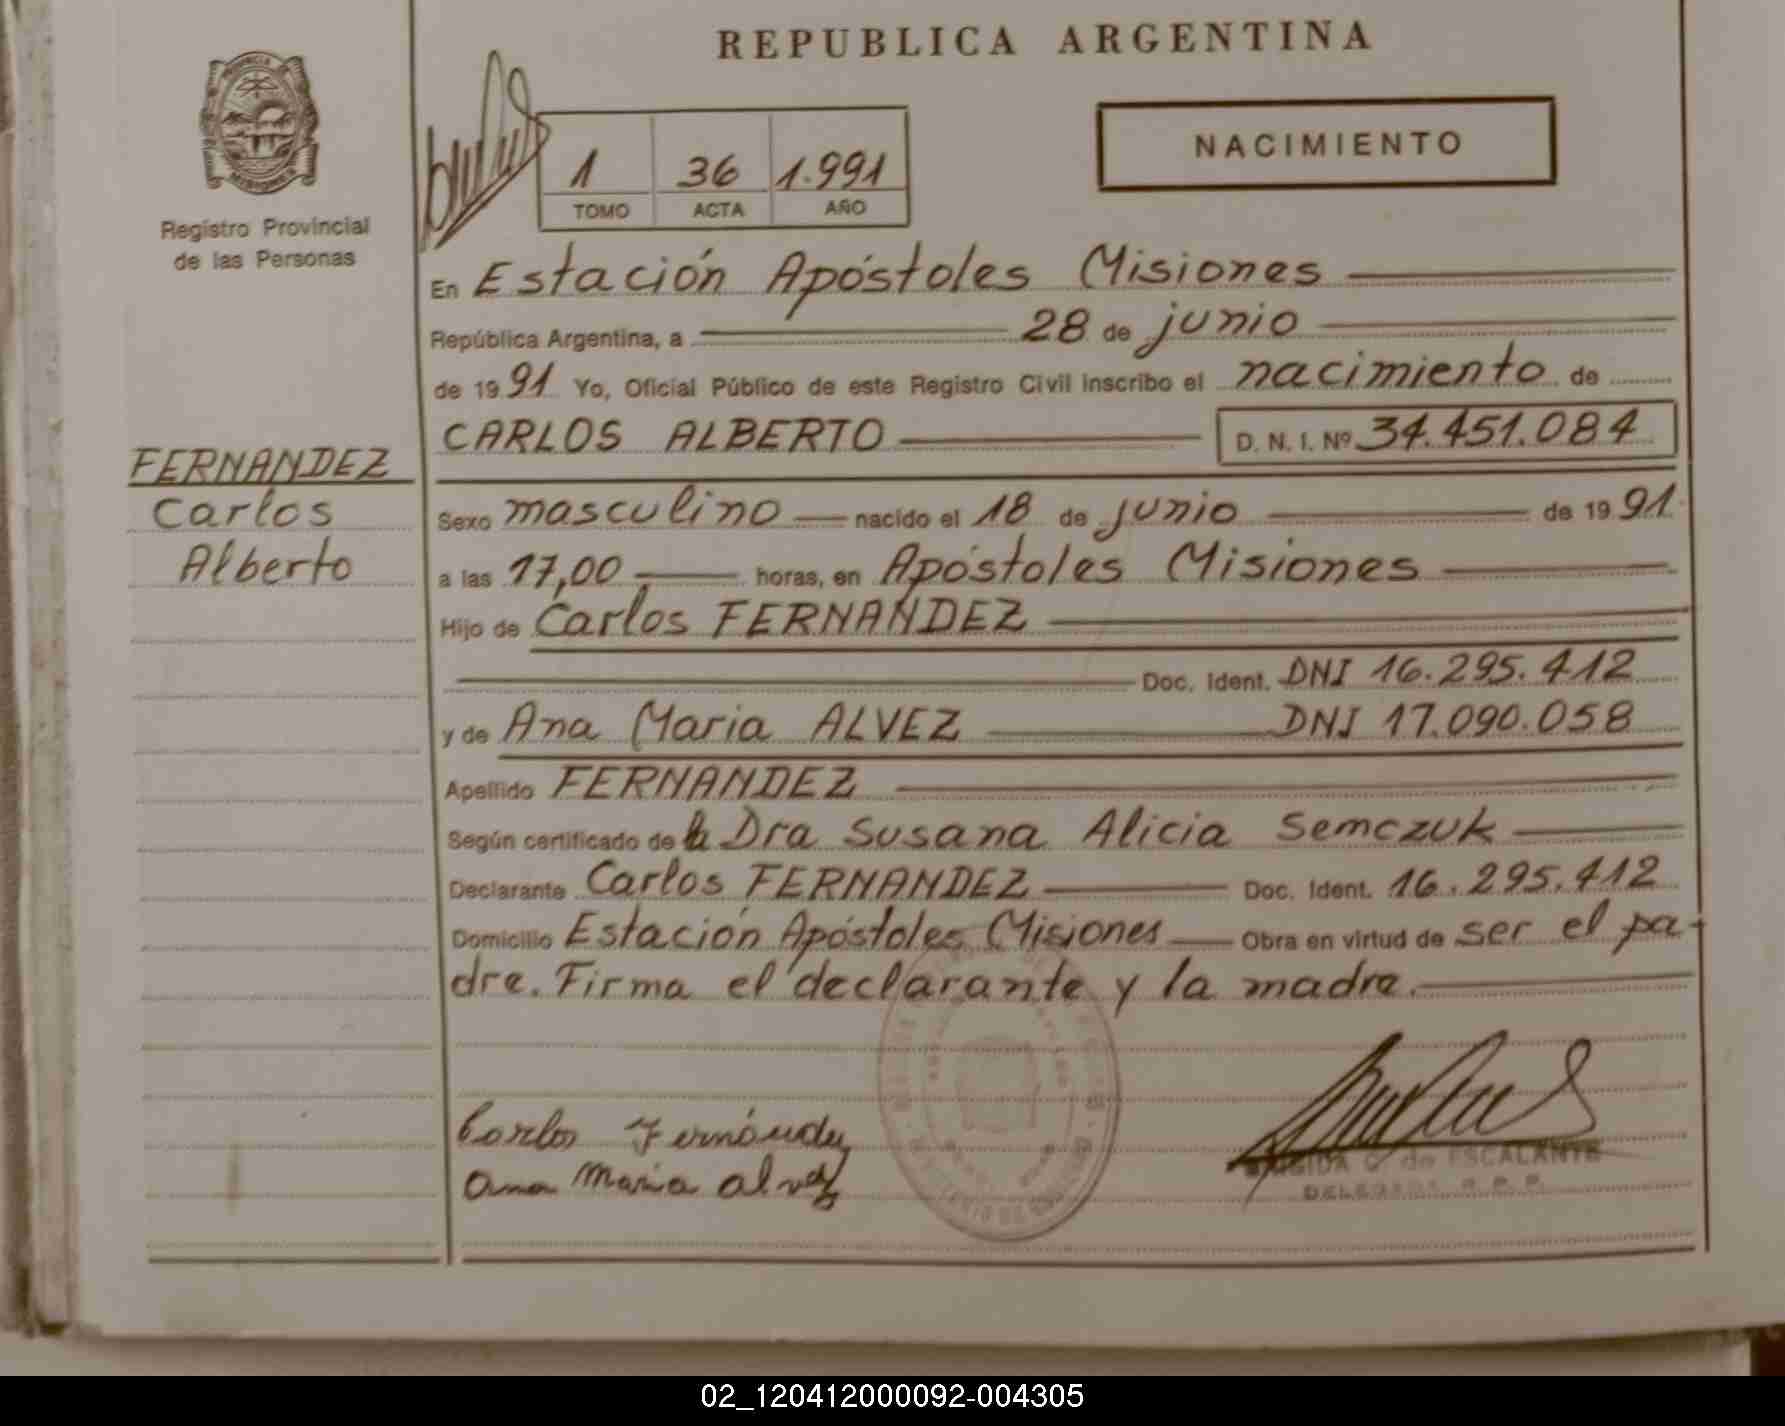 REPUBLICA ARGENTINA
PROVINCIA DE
MISIONES
Registro Provincial
de las Personas
1 36 1.991
TOMO ACTA AÑO
NACIMIENTO
En Estación Apóstoles Misiones
República Argentina, a 28 de junio
de 19 91 Yo, Oficial Público de este Registro Civil inscribo el nacimiento de
CARLOS ALBERTO D. N. I. Nº 34.451.084
FERNANDEZ
Carlos
Alberto
Sexo masculino nacido el 18 de junio de 19 91.
a las 17,00 horas, en Apóstoles Misiones
Hijo de Carlos FERNANDEZ
Doc. Ident. DNI 16.295.412
y de Ana Maria ALVEZ DNI 17.090.058
Apellido FERNANDEZ
Según certificado de la Dra Susana Alicia Semczuk
Declarante Carlos FERNANDEZ Doc. Ident. 16.295.412
Domicilio Estación Apóstoles Misiones Obra en virtud de ser el pa-
dre. Firma el declarante y la madre.
Carlos Fernández
Ana Maria Alvez
BRIGIDA G. de ESCALANTE
DELEGADA R. P. P.
02_120412000092-004305